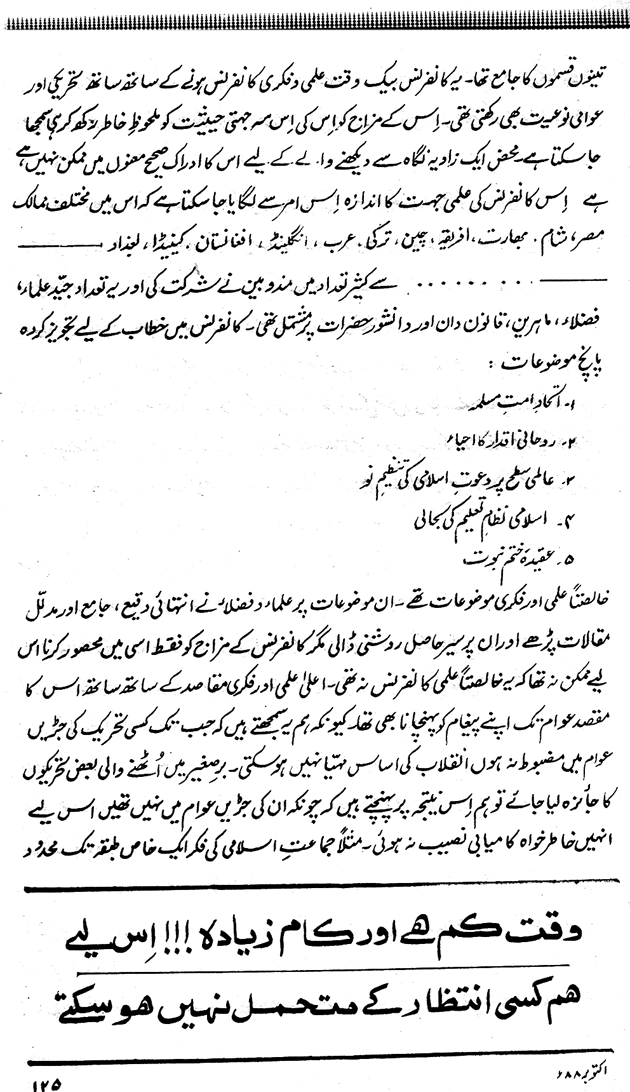 تینوں قسموں کا جامع تھا۔ یہ کانفرنس بیک وقت علمی و فکری کانفرنس ہونے کے ساتھ ساتھ تحریکی اور
عوامی نوعیت بھی رکھتی تھی۔ اِس کے مزاج کو اِس کی اِس سہ جہتی حیثیت کو ملحوظِ خاطر رکھ کر ہی سمجھا
جا سکتا ہے۔ محض ایک زاویہ نگاہ سے دیکھنے والے کے لیے اس کا ادراک صحیح معنوں میں ممکن نہیں ہے
ہے اِس کانفرنس کی علمی جہت کا اندازہ اِس امر سے لگایا جا سکتا ہے کہ اس میں مختلف ممالک
مصر، شام۔ بھارت، افریقہ، چین، ترکی، عرب، انگلینڈ، افغانستان، کینیڈا، بغداد ———
——— ........ سے کثیر تعداد میں مندوبین نے شرکت کی اور یہ تعداد جیّد علماء،
فضلاء، ماہرین، قانون دان اور دانشور حضرات پر مشتمل تھی۔ کانفرنس میں خطاب کے لیے تجویز کردہ
پانچ موضوعات :
۱۔ اتحادِ امتِ مسلمہ
۲۔ روحانی اقدار کا احیاء
۳۔ عالمی سطح پر دعوتِ اسلامی کی تنظیمِ نو
۴۔ اسلامی نظامِ تعلیم کی بحالی
۵۔ عقیدۂ ختم نبوت
خالصتاً علمی اور فکری موضوعات تھے۔ ان موضوعات پر علماء و فضلاء نے انتہائی وقیع، جامع اور مدلّل
مقالات پڑھے اور ان پر سیر حاصل روشنی ڈالی مگر کانفرنس کے مزاج کو فقط اسی میں محصور کرنا اس
لیے ممکن نہ تھا کہ یہ خالصتاً علمی کانفرنس نہ تھی۔ اعلیٰ علمی اور فکری مقاصد کے ساتھ ساتھ اس کا
مقصد عوام تک اپنے پیغام کو پہنچانا بھی تھا۔ کیونکہ ہم یہ سمجھتے ہیں کہ جب تک کسی تحریک کی جڑیں
عوام میں مضبوط نہ ہوں انقلاب کی اساس مہیّا نہیں ہو سکتی۔ برصغیر میں اُٹھنے والی بعض تحریکوں
کا جائزہ لیا جائے تو ہم اِس نتیجہ پر پہنچتے ہیں کہ چونکہ ان کی جڑیں عوام میں نہیں تھیں اس لیے
انہیں خاطر خواہ کامیابی نصیب نہ ہوئی۔ مثلاً جماعتِ اسلامی کی فکر ایک خاص طبقہ تک محدود
وقت کم ھے اور کام زیادہ !!! اِس لیے
ھم کسی انتظار کے متحمل نہیں ھو سکتے
اکتوبر ۸۸ء
۱۲۵